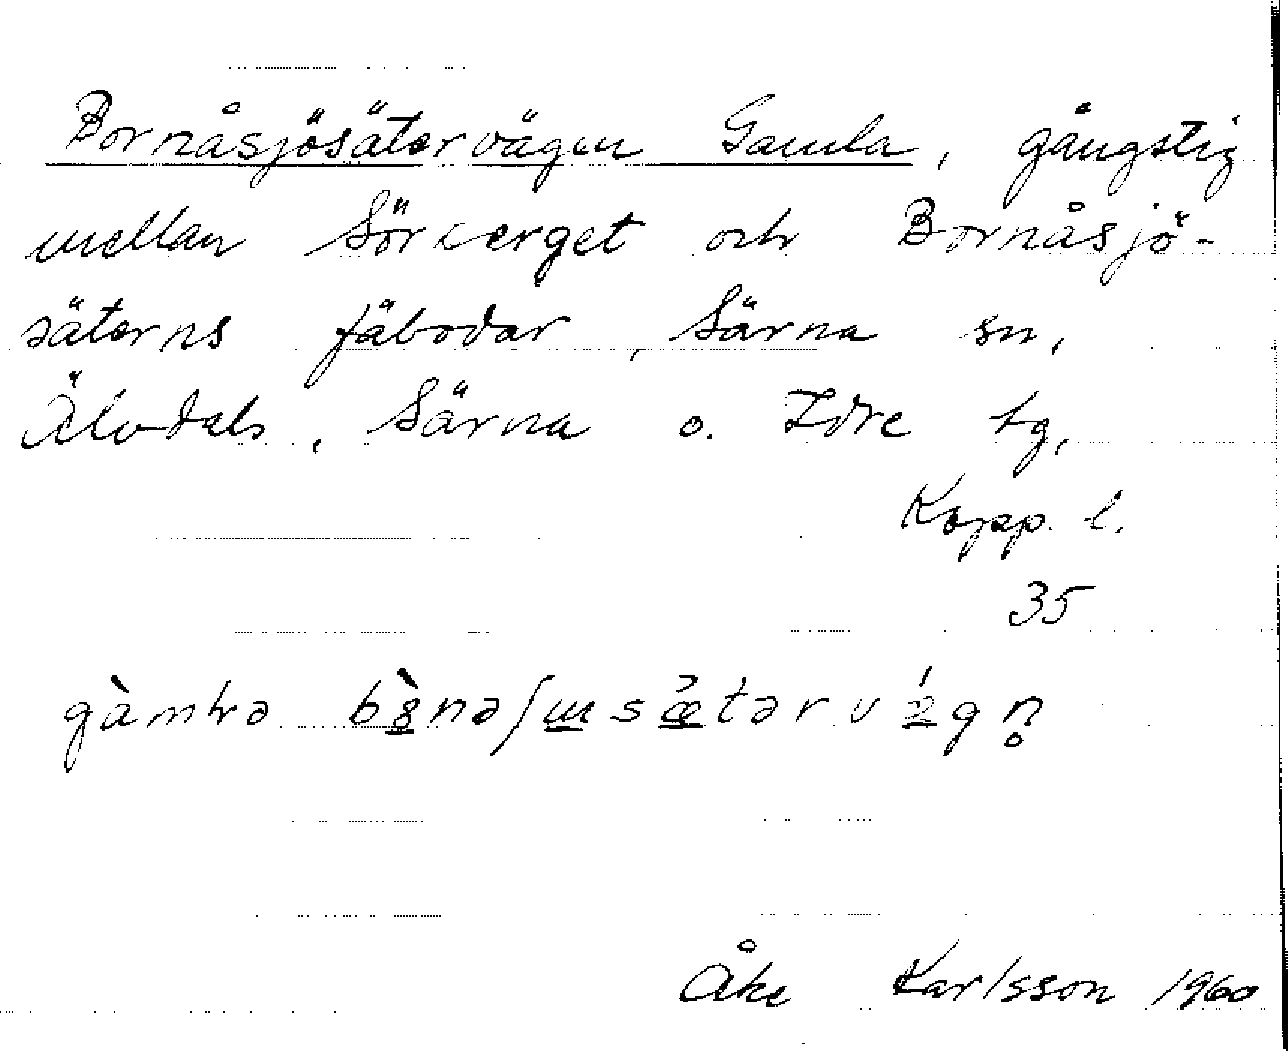 Bornåsjösätervägen Gamla, gångstig
mellan Sörberget och Bornåsjö-
säterns fäbodar, Särna sn,
Älvdals, Särna o. Idre tg,
Kopp. l.
35
Åke Karlsson 1960